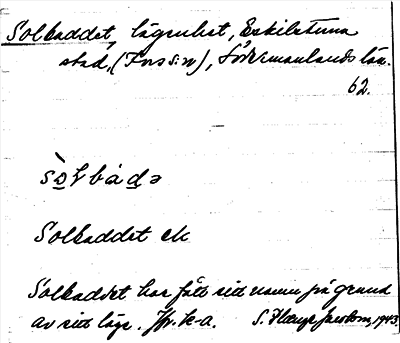 Solbaddet, lägenhet, Eskilstuna
stad, (Fors sn), Södermanlands län.
62.
Solbaddet
Solbaddet har fått sitt namn på grund
av sitt läge. Jfr. k-a. S. 1943.